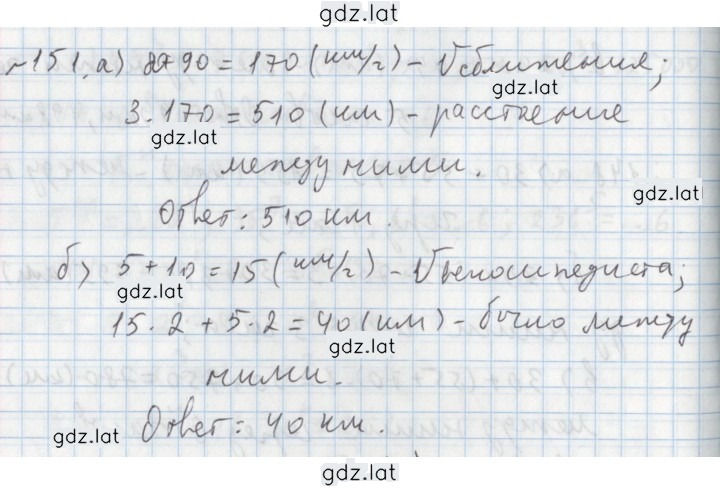 gdz.lat
№151. а) 80+90 = 170 (км/г) - V сближения;
gdz.lat
3·170 = 510 (км) - расстояние
gdz.lat
между ними.
gdz.lat
Ответ: 510 км.
б) 5+10 = 15 (км/г) - V велосипедиста;
gdz.lat
15·2 + 5·2 = 40 (км) - было между
gdz.lat
ними.
Ответ: 40 км.
gdz.lat
gdz.lat